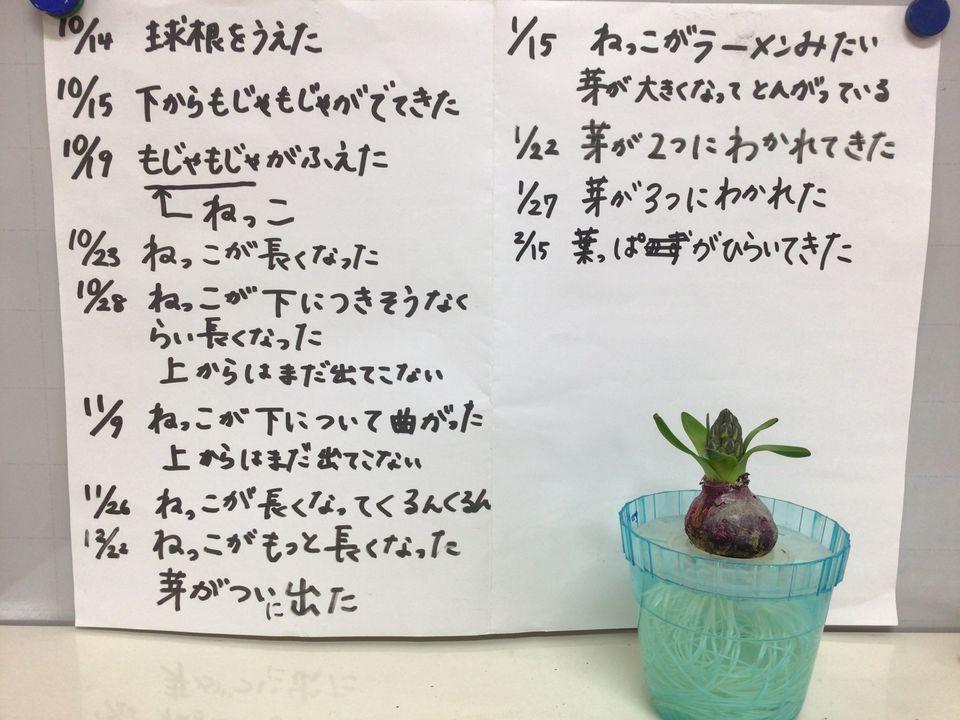 10/14 球根をうえた
10/15 下からもじゃもじゃがでてきた
10/19 もじゃもじゃがふえた
ねっこ
10/23 ねっこが長くなった
10/28 ねっこが下につきそうなく
らい長くなった
上からはまだ出てこない
11/9 ねっこが下について曲がった
上からはまだ出てこない
11/26 ねっこが長くなってくるんくるん
12/22 ねっこがもっと長くなった
芽がついに出た
1/15 ねっこがラーメンみたい
芽が大きくなってとんがっている
1/22 芽が2つにわかれてきた
1/27 芽が3つにわかれた
2/15 葉っぱがひらいてきた